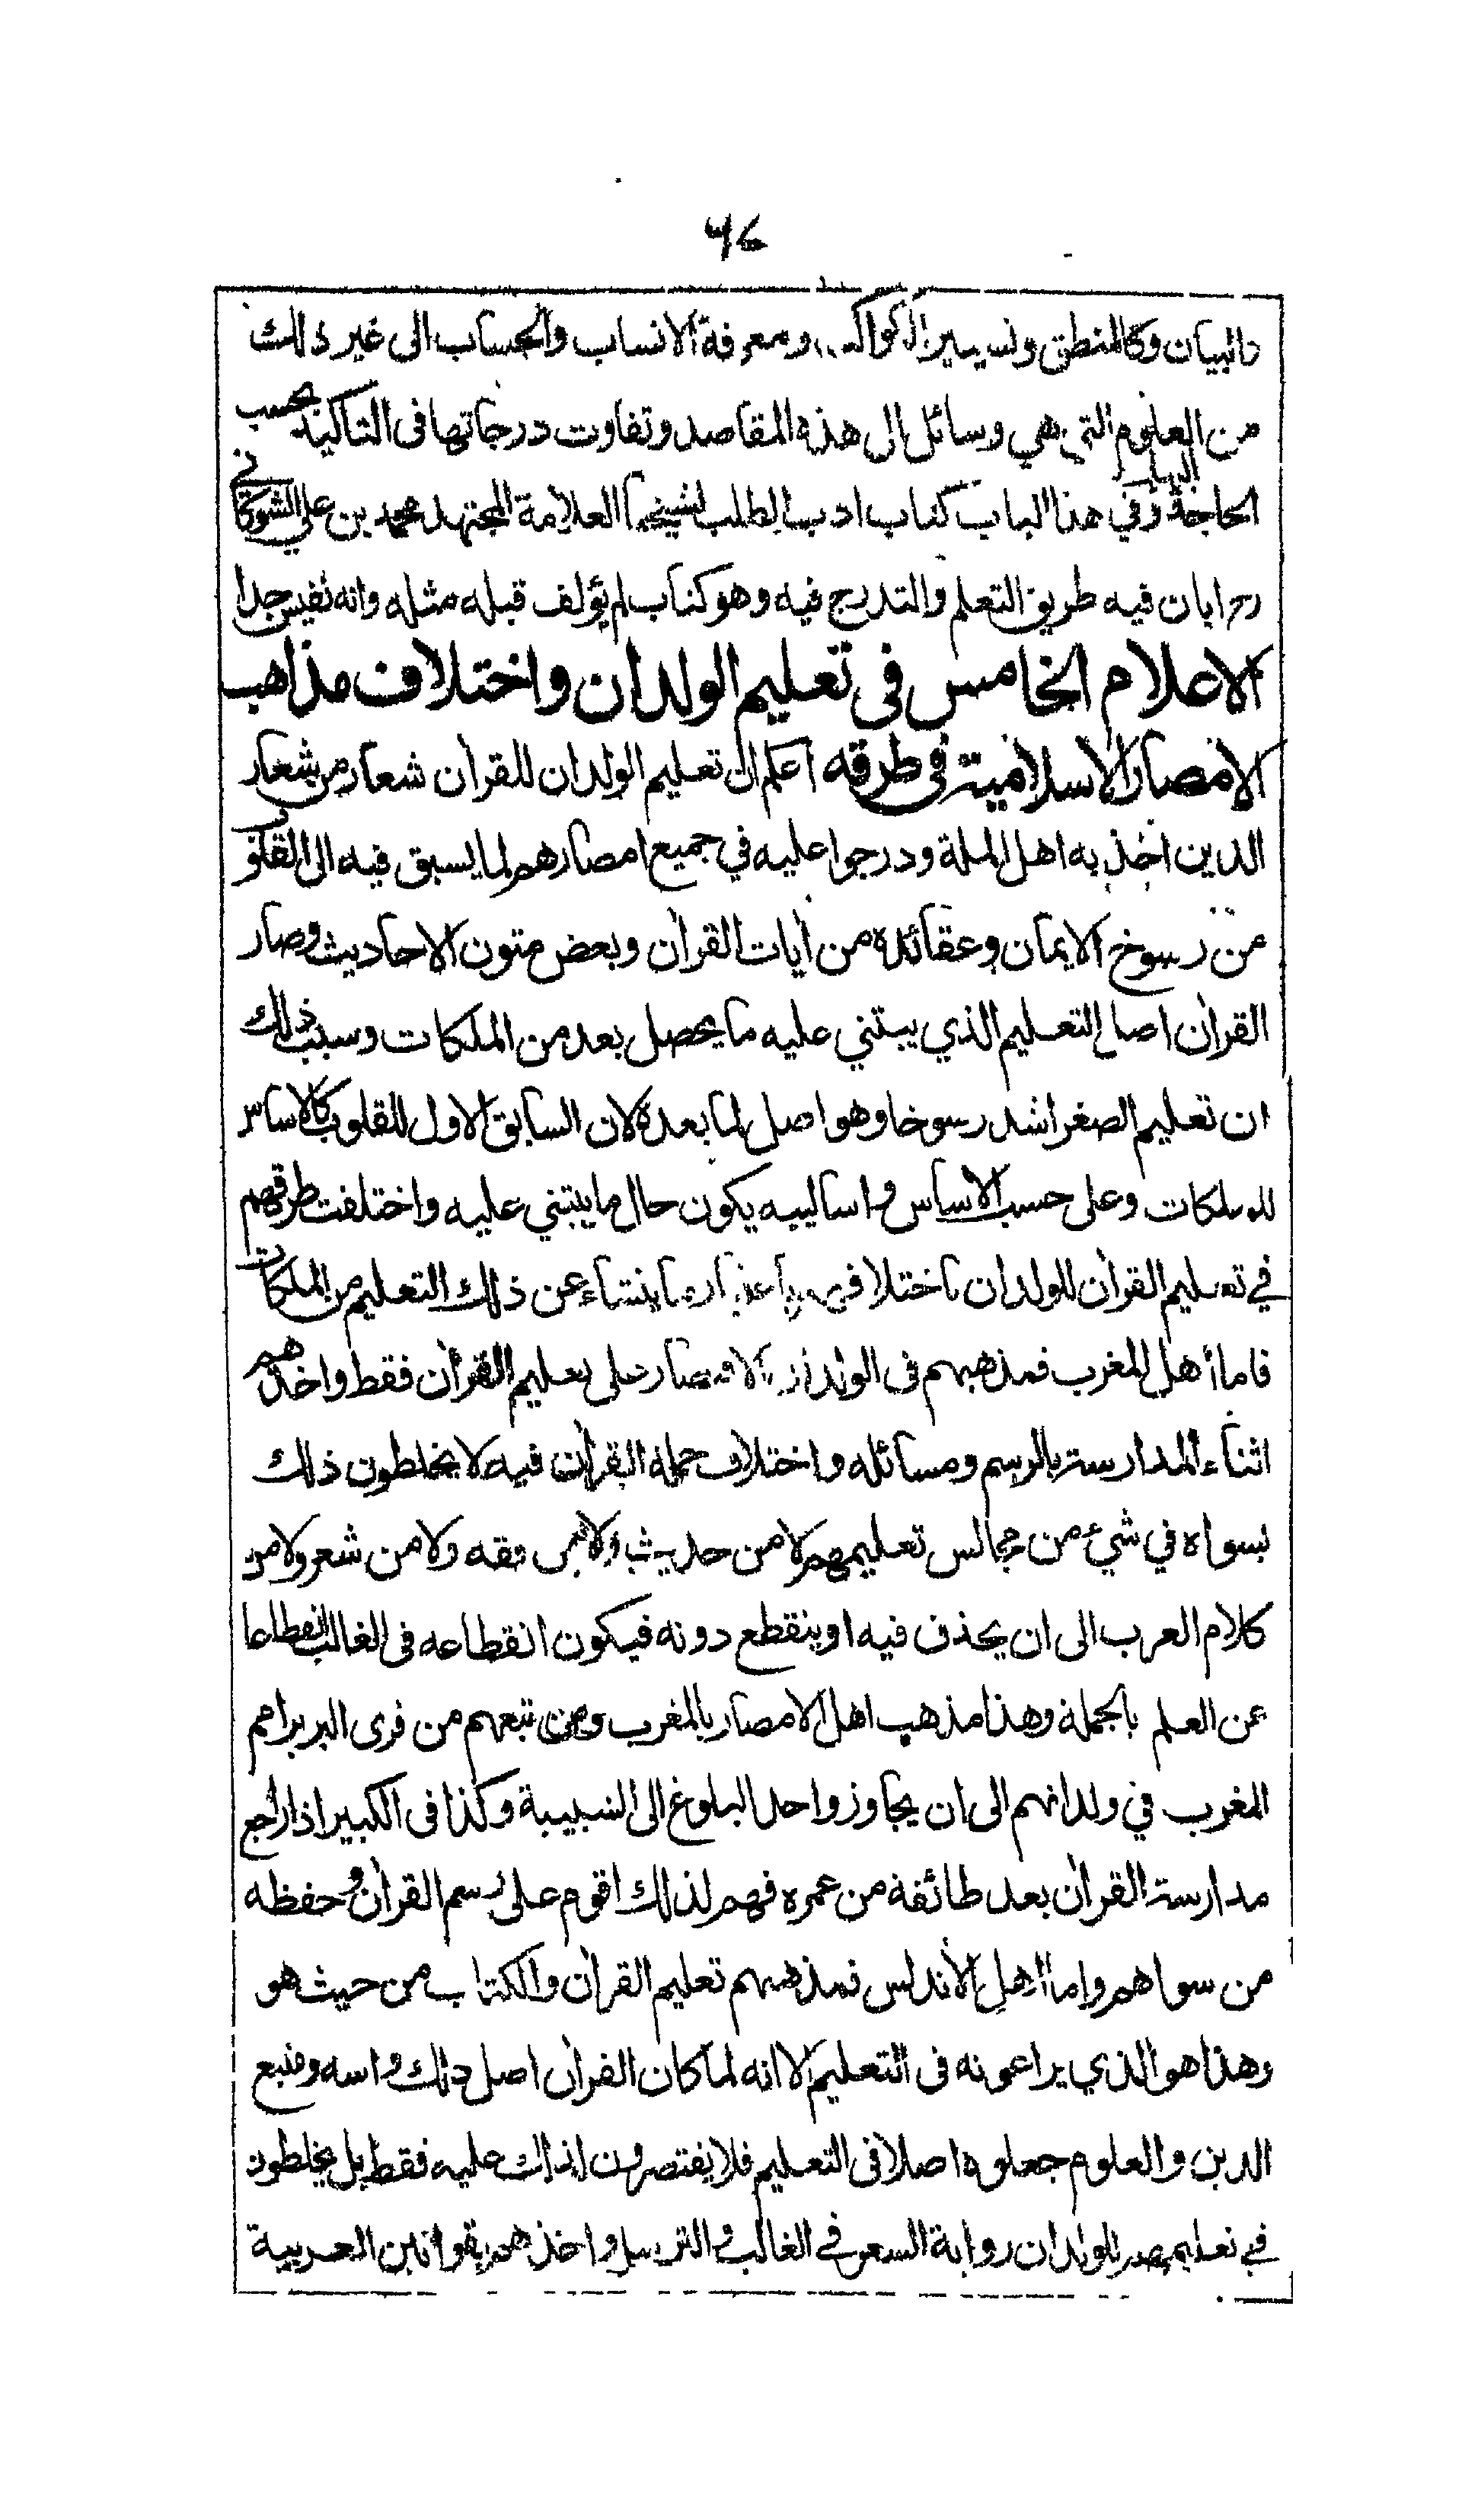 ٧٦
والبيان وكالمنطق وتسيير الكواكب ومعرفة الانساب والحساب الى غير ذلك
من العلوم التي هي وسائل الى هذه المقاصد وتفاوت درجاتها فى التاكيد بحسب
الحاجة اليها وفي هذا الباب كتاب ادب الطلب لشيخنا العلامة المجتهد محمد بن علي الشوكاني
رح ابان فيه طريق التعلم والتدرج فيه وهو كتاب لم يؤلف قبله مثله وانه نفيس جدا
الاعلام الخامس فى تعليم الولدان واختلاف مذاهب
الامصار الاسلامية فى طرقه اعلم ان تعليم الولدان للقرآن شعار من شعار
الدين اخذ به اهل الملة ودرجوا عليه في جميع امصارهم لما يسبق فيه الى القلوب
من رسوخ الايمان وعقائده من آيات القرآن وبعض متون الاحاديث وصار
القرآن اصل التعليم الذي يبتني عليه ما يحصل بعد من الملكات وسبب ذلك
ان تعليم الصغر اشد رسوخا وهو اصل لما بعده لان السابق الاول للقلوب كالاساس
للملكات وعلى حسب الاساس واساليبه يكون حال ما يبتني عليه واختلفت طرقهم
في تعليم القرآن للولدان باختلافهم باعتبار ما ينشاء عن ذلك التعليم من الملكات
فاما أهل المغرب فمذهبهم فى الولدان الاقتصار على تعليم القرآن فقط واخذهم
اثناء المدارسة بالرسم ومسائله واختلاف حملة القرآن فيه لا يخلطون ذلك
بسواه في شيء من مجالس تعليمهم لا من حديث ولا من فقه ولا من شعر ولا من
كلام العرب الى ان يحذق فيه او ينقطع دونه فيكون انقطاعه فى الغالب انقطاعا
عن العلم بالجملة وهذا مذهب اهل الامصار بالمغرب ومن تبعهم من قرى البربر امم
المغرب في ولدانهم الى ان يجاوزوا حد البلوغ الى الشبيبة وكذا فى الكبير اذا راجع
مدارسة القرآن بعد طائفة من عمره فهم لذلك اقوم على رسم القرآن وحفظه
من سواهم واما اهل الأندلس فمذهبهم تعليم القرآن والكتاب من حيث هو
وهذا هو الذي يراعونه فى التعليم الا انه لما كان القرآن اصل ذلك واسه ومنبع
الدين والعلوم جعلوه اصلا فى التعليم فلا يقتصرون لذلك عليه فقط بل يخلطون
في تعليمهم للولدان رواية الشعر في الغالب والترسل واخذهم بقوانين العربية